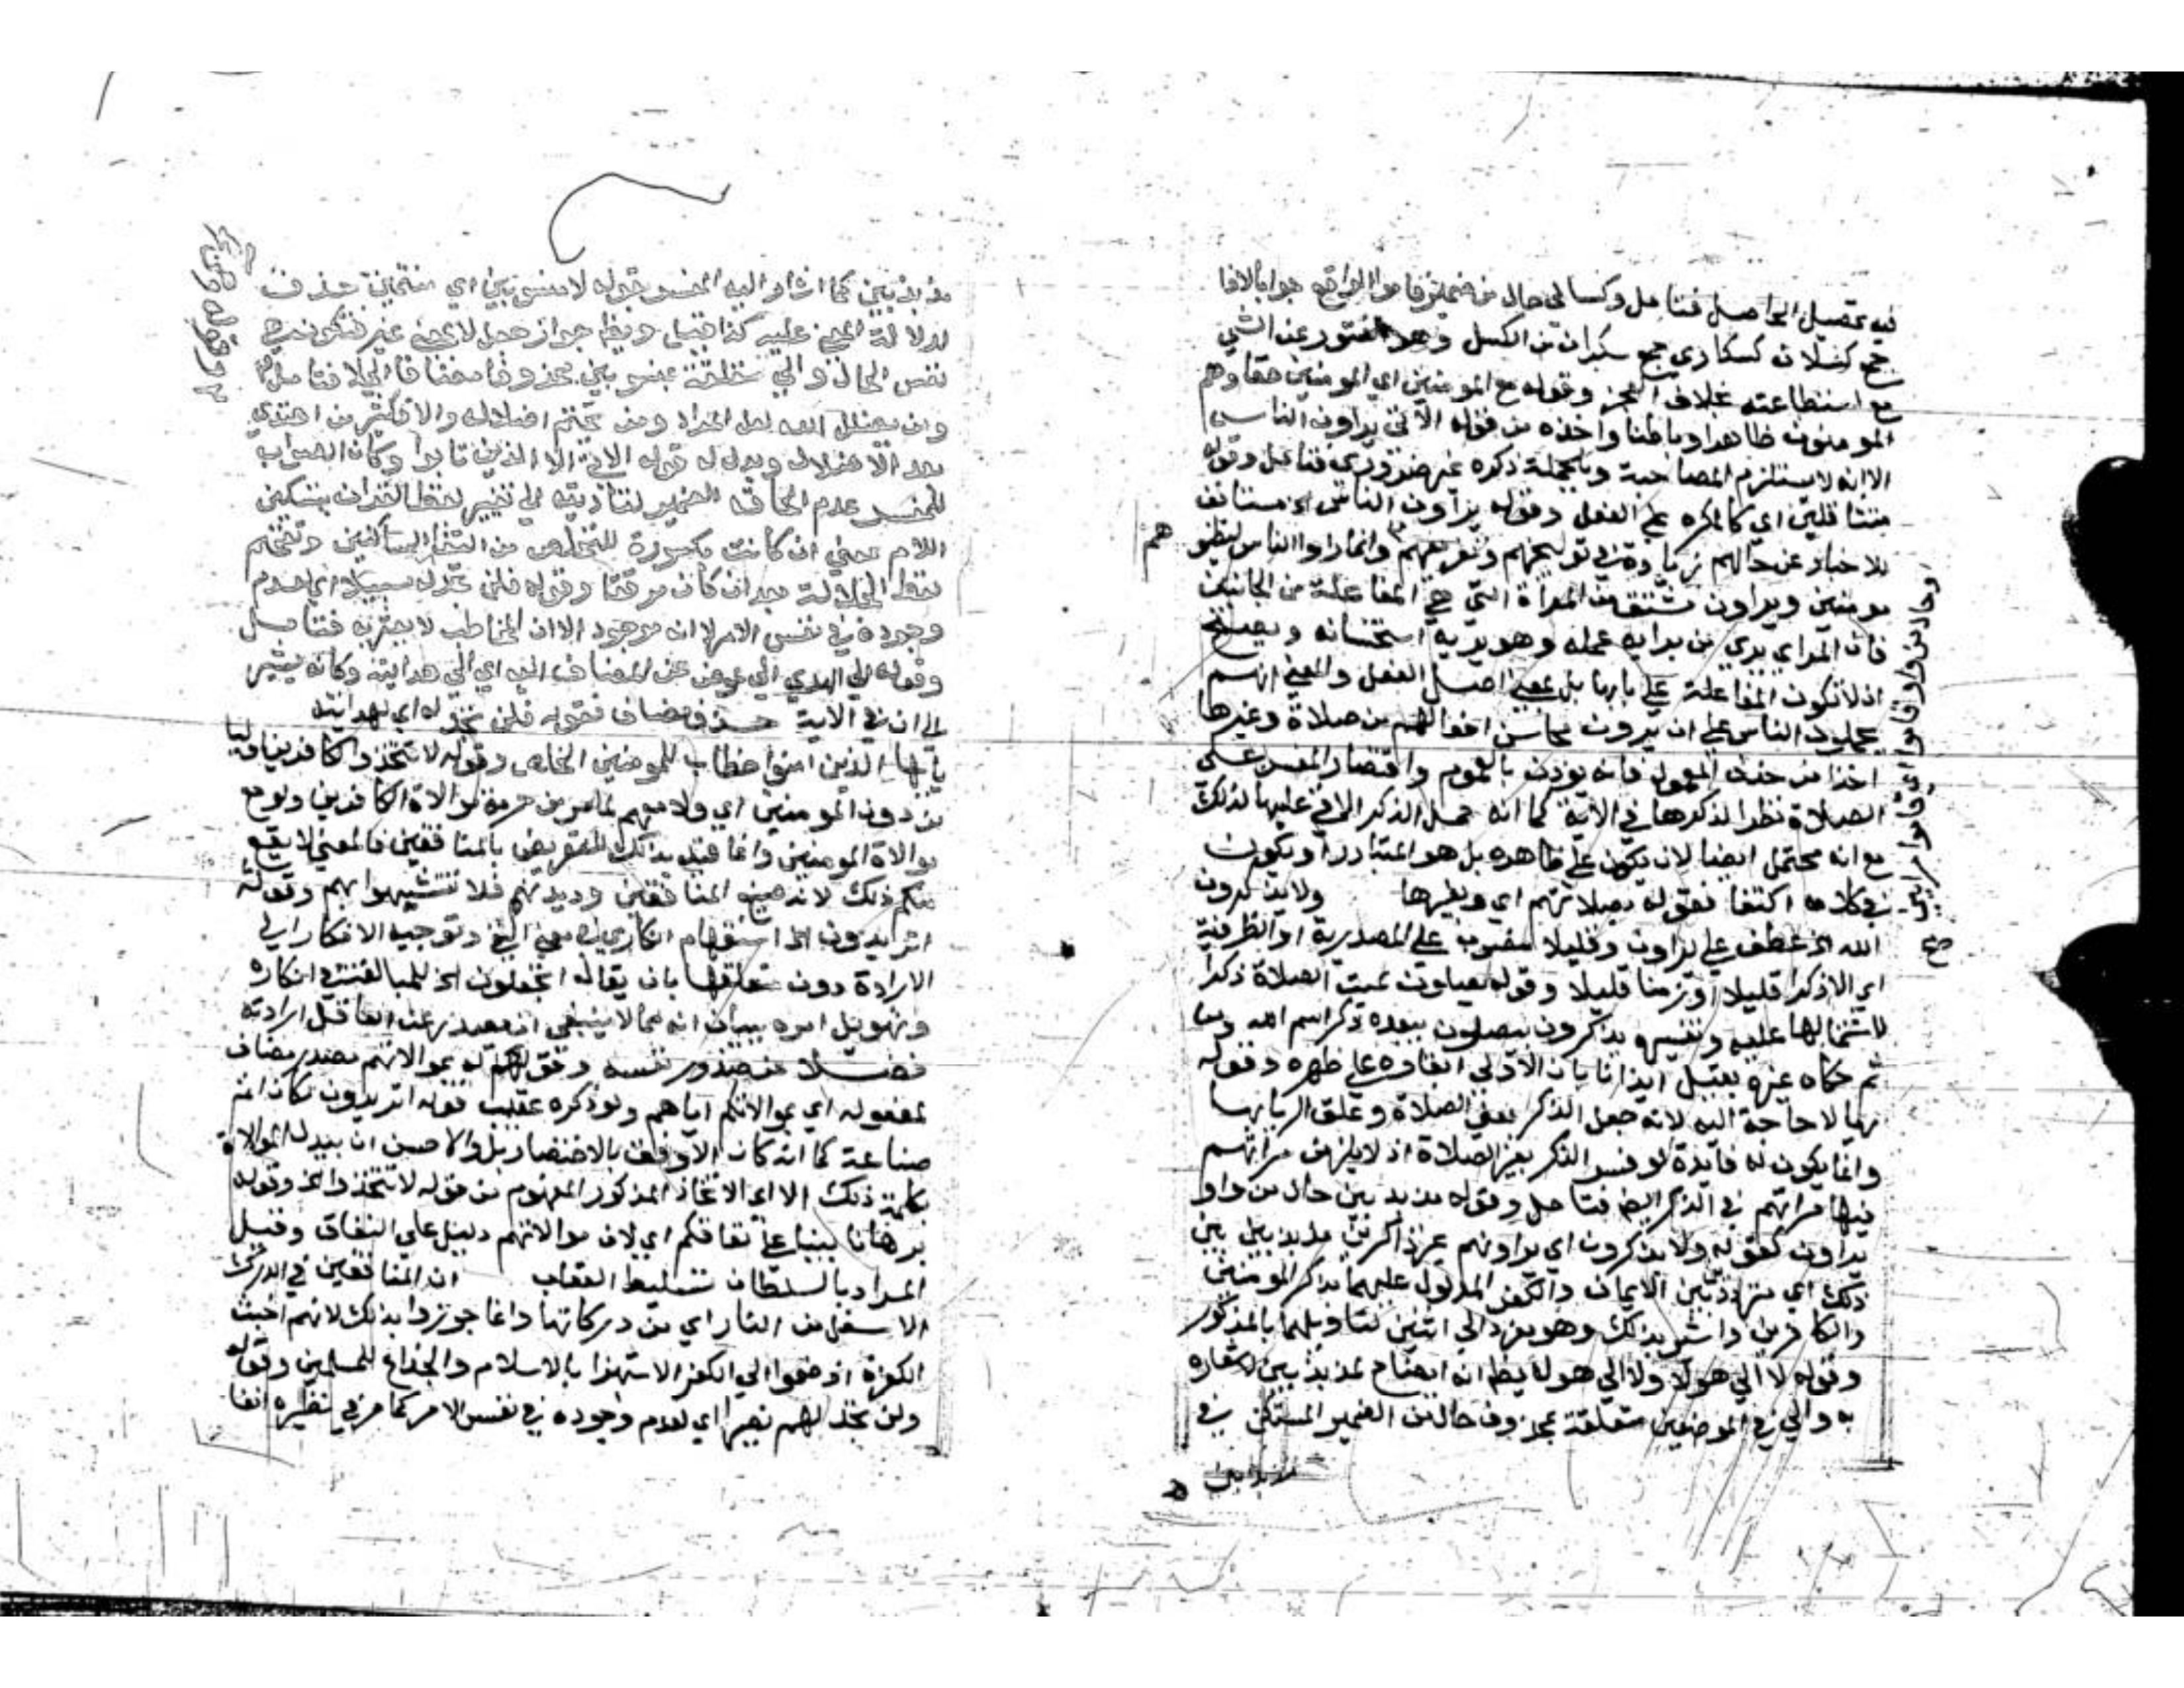 فيه تحصيل الحاصل فتامل وكسالى حال من ضمير قاموا الواقع جوابا لاذا
جمع كسلان كسكارى جمع سكران من الكسل وهو الفتور عن الشي
مع استطاعته بخلاف العجز وقوله مع المومنين اي المومنين حقا وهم
المومنون ظاهرا وباطنا واخذه من قوله الآتي يراون الناس
الا انه لا يستلزم المصاحبة وبالجملة ذكره غير ضروري فتامل وقوله
متثاقلين اي كالمكره على الفعل وقوله يراون الناس الخ مستانف
للاخبار عن حالهم زيادة في توبيخهم وتقريعهم وانما راوا الناس ليظنوهم
مومنين ويراون مشتق من المراة التي هي المفاعلة من الجانبين
فان المراي يري من يرايه عمله وهو يريه استحسانه ويصح
ان لا تكون المفاعلة على بابها بل بمعنى اصل الفعل والمعنى انهم
يحملون الناس على ان يرون محاسن افعالهم من صلاة وغيرها
اخذا من حذف المعمول فانه يوذن بالعموم واقتصار المفسر على
الصلاة نظرا لذكرها في الاية كما انه حمل الذكر الاتي عليها لذلك
مع انه محتمل ايضا لان يكون على ظاهره بل هو المتبادر او يكون
في كلامه اكتفا فقوله بصلاتهم اي وغيرها ولا يذكرون
الله الخ عطف على يراون وقليلا منصوب على المصدرية او الظرفية
اي الا ذكرا قليلا او زمنا قليلا وقوله يصلون سميت الصلاة ذكرا
لاشتمالها عليه وتفسيره يذكرون بيصلون يبعده ذكر اسم الله ومن
ثم حكاه غيره بقيل ايذانا بان الاولى ابقاوه على ظهره وقوله
ريا لا حاجة اليه لانه جعل الذكر بمعنى الصلاة وعلق الريا بها
وانما يكون له فايدة لو فسر الذكر بغير الصلاة اذ لا يلزم من مراتهم
فيها مراتهم في الذكر ايضا فتامل وقوله مذبذبين حال من واو
يراون كقوله ولا يذكرون اي يراونهم غير ذاكرين مذبذبين بين
ذلك اي مترددين بين الايمان والكفر المدلول عليهما بذكر المومنين
والكافرين واشير بذلك وهو مفرد الى اثنين لتاويلهما بالمذكور
وقوله لا الى هولا ولا الى هولا يظهر انه ايضاح لمذبذبين لاشعاره
به والى في الموضعين متعلقة بمحذوف حال من الضمير المستكن في
مذبذبين
مذبذبين كما اشار اليه المفسر بقوله لا منسوبين اي منتمين حذف
لدلالة المعنى عليه كذا قيل
نفس الحال والى متعلقة بمنسوبين محذوفا مضافا الى لا فتامل
ومن يضلل الله لعل المراد ومن يحتم اضلاله والا فكثير من اهتدى
بعد الاضلال ويدل له قوله الاتي الا الذين تابوا وكان الصواب
للمفسر عدم الحاقه الضمير لتاديته الى تغيير لفظ القران بتسكين
اللام بمعنى ان كانت مكسورة للتخلص من التقا الساكنين وتفخيم
لفظ الجلالة بعد ان كان مرققا وقوله فلن تجد له سبيلا اي لعدم
وجوده في نفس الامر لا انه موجود الا ان المخاطب لا يعثر به فتامل
وقوله الى الهدى ال عوض عن المضاف اليه اي الى هدايته وكانه يشير
الى ان في الاية حذف مضاف فقوله فلن تجد له اي لهدايته
يا ايها الذين امنوا خطاب للمومنين الخلص وقوله لا تتخذوا الكافرين اوليا
من دون المومنين اي ولا معهم لما مر من حرمة موالاة الكافرين ولو مع
موالاة المومنين وانما قيل بذلك للتعريض بالمنافقين فالمعنى لا يقع
منكم ذلك لانه صنيع المنافقين وديدنهم فلا تتشبهوا بهم وقوله
اتريدون الخ استفهام انكاري في معنى النفي وتوجيه الانكار الى
الارادة دون متعلقها بان يقال اتجعلون الخ للمبالغة في انكاره
وتهويل امره ببيان انه مما لا ينبغي ان يصدر عن العاقل ارادته
فضلا عن صدور نفسه وقوله بموالاتهم مصدر مضاف
لمفعوله اي بموالاتكم اياهم ولو ذكره عقيب قوله اتريدون لكان امر
صناعة كما انه كان الاوفق بالاختصار بل والاحسن ان يبدل الموالاة
بكلمة ذلك الا اي الاتخاذ المذكور المفهوم من قوله لا تتخذوا الخ وقوله
برهانا بينا على نفاقكم اي لان موالاتهم دليل على النفاق وقيل
المراد بالسلطان تسليط العقاب ان المنافقين في الدرك
الاسفل من النار اي من دركاتها وانما جوزوا بذلك لانهم اخبث
الكفرة اذ ضموا الى الكفر الاستهزا بالاسلام والخداع للمسلمين وقوله
ولن تجد لهم نصيرا اي لعدم وجوده في نفس الامر كما مر في نظيره انفا